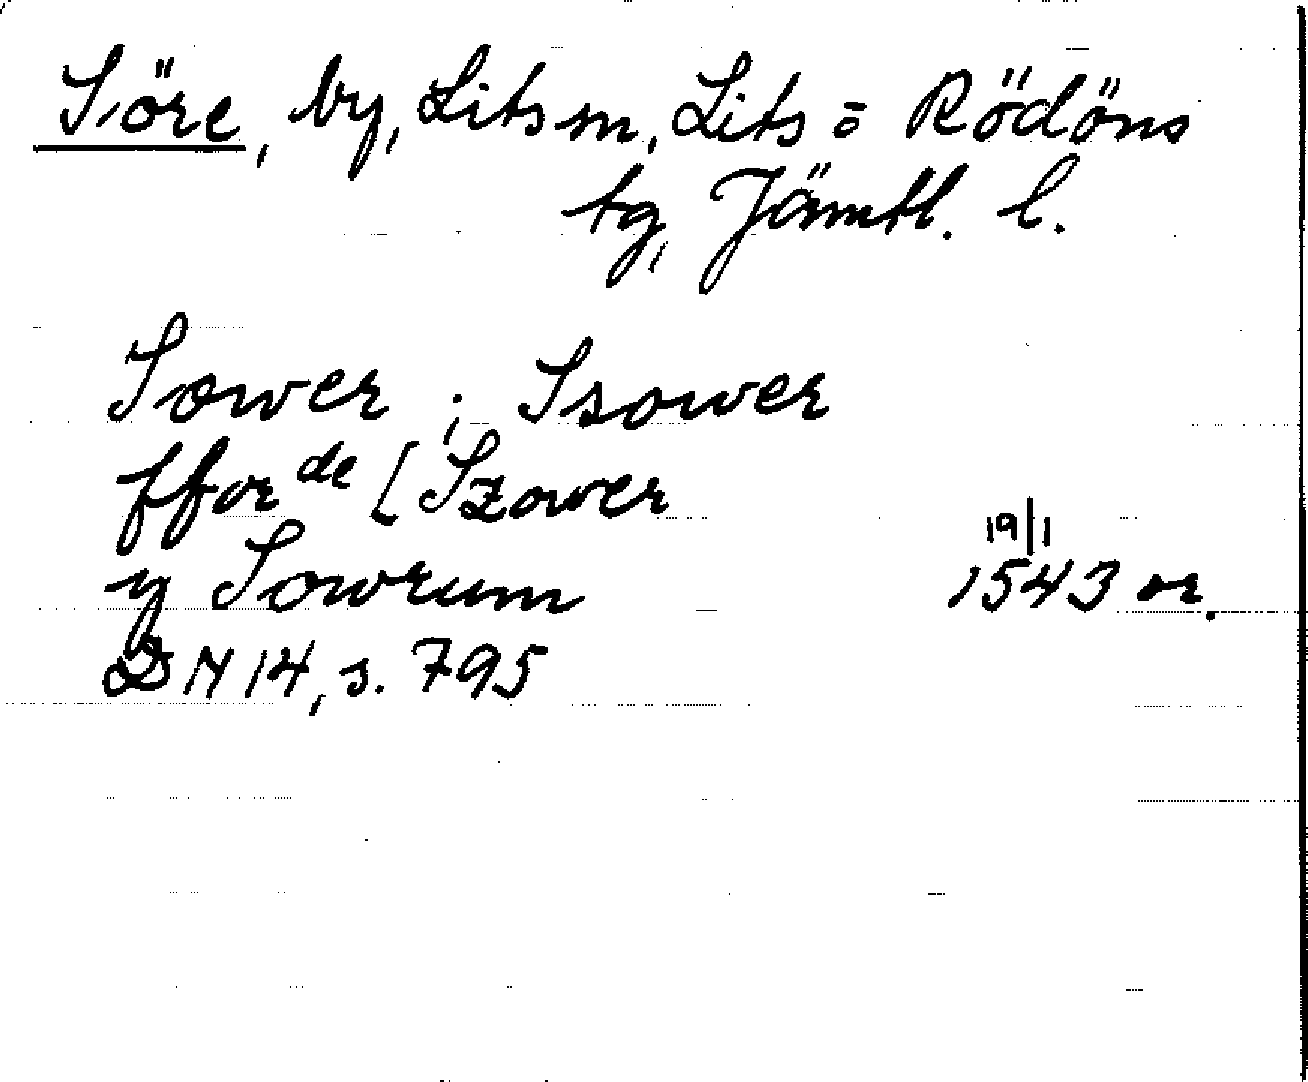 Söre, by, Lits sn, Lits = Rödöns
tg, Jämtl. l.
Sower ; Ssower
fforde [Szower
y Sowrum 19/1 1543 or.
DN 14, s. 795